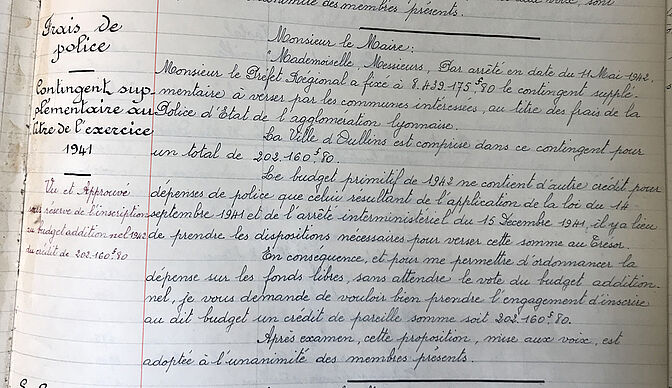 des membres présents.
Frais de
police
Contingent sup-
plémentaire au
titre de l'exercice
1941
Vu et Approuvé
sous réserve de l'inscription
au budget additionnel 1942
du crédit de 202.160f80
Monsieur le Maire:
"Mademoiselle, Messieurs, Par arrêté en date du 11 Mai 1942,
Monsieur le Préfet Régional a fixé à 8.439.175f80 le contingent supplé-
mentaire à verser par les communes intéressées, au titre des frais de la
Police d'Etat de l'agglomération lyonnaise.
La Ville d'Oullins est comprise dans ce contingent pour
un total de 202.160f80.
Le budget primitif de 1942 ne contient d'autre crédit pour
dépenses de police que celui résultant de l'application de la loi du 14
septembre 1941 et de l'arrêté interministériel du 15 Décembre 1941, il y a lieu
de prendre les dispositions nécessaires pour verser cette somme au Trésor.
En conséquence, et pour me permettre d'ordonnancer la
dépense sur les fonds libres, sans attendre le vote du budget addition-
nel, je vous demande de vouloir bien prendre l'engagement d'inscrire
au dit budget un crédit de pareille somme soit 202.160f80.
Après examen, cette proposition, mise aux voix, est
adoptée à l'unanimité des membres présents.